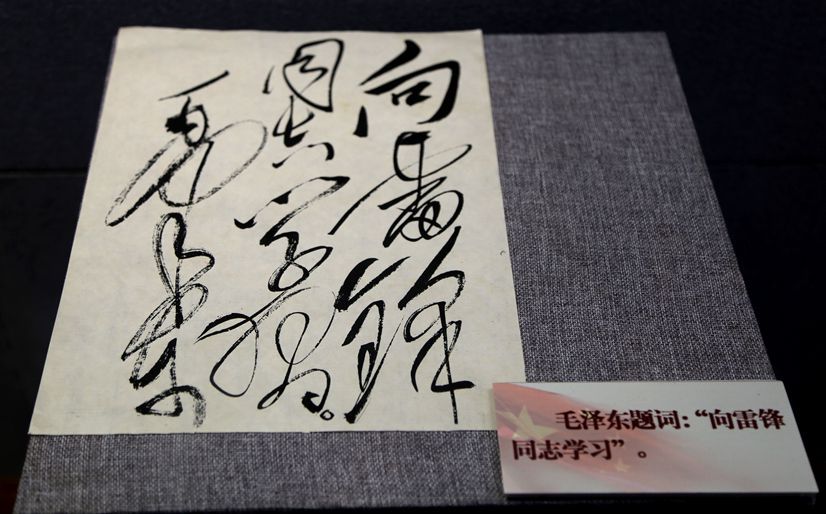 向雷锋
同志学习。
毛泽东
毛泽东题词:“向雷锋
同志学习”。